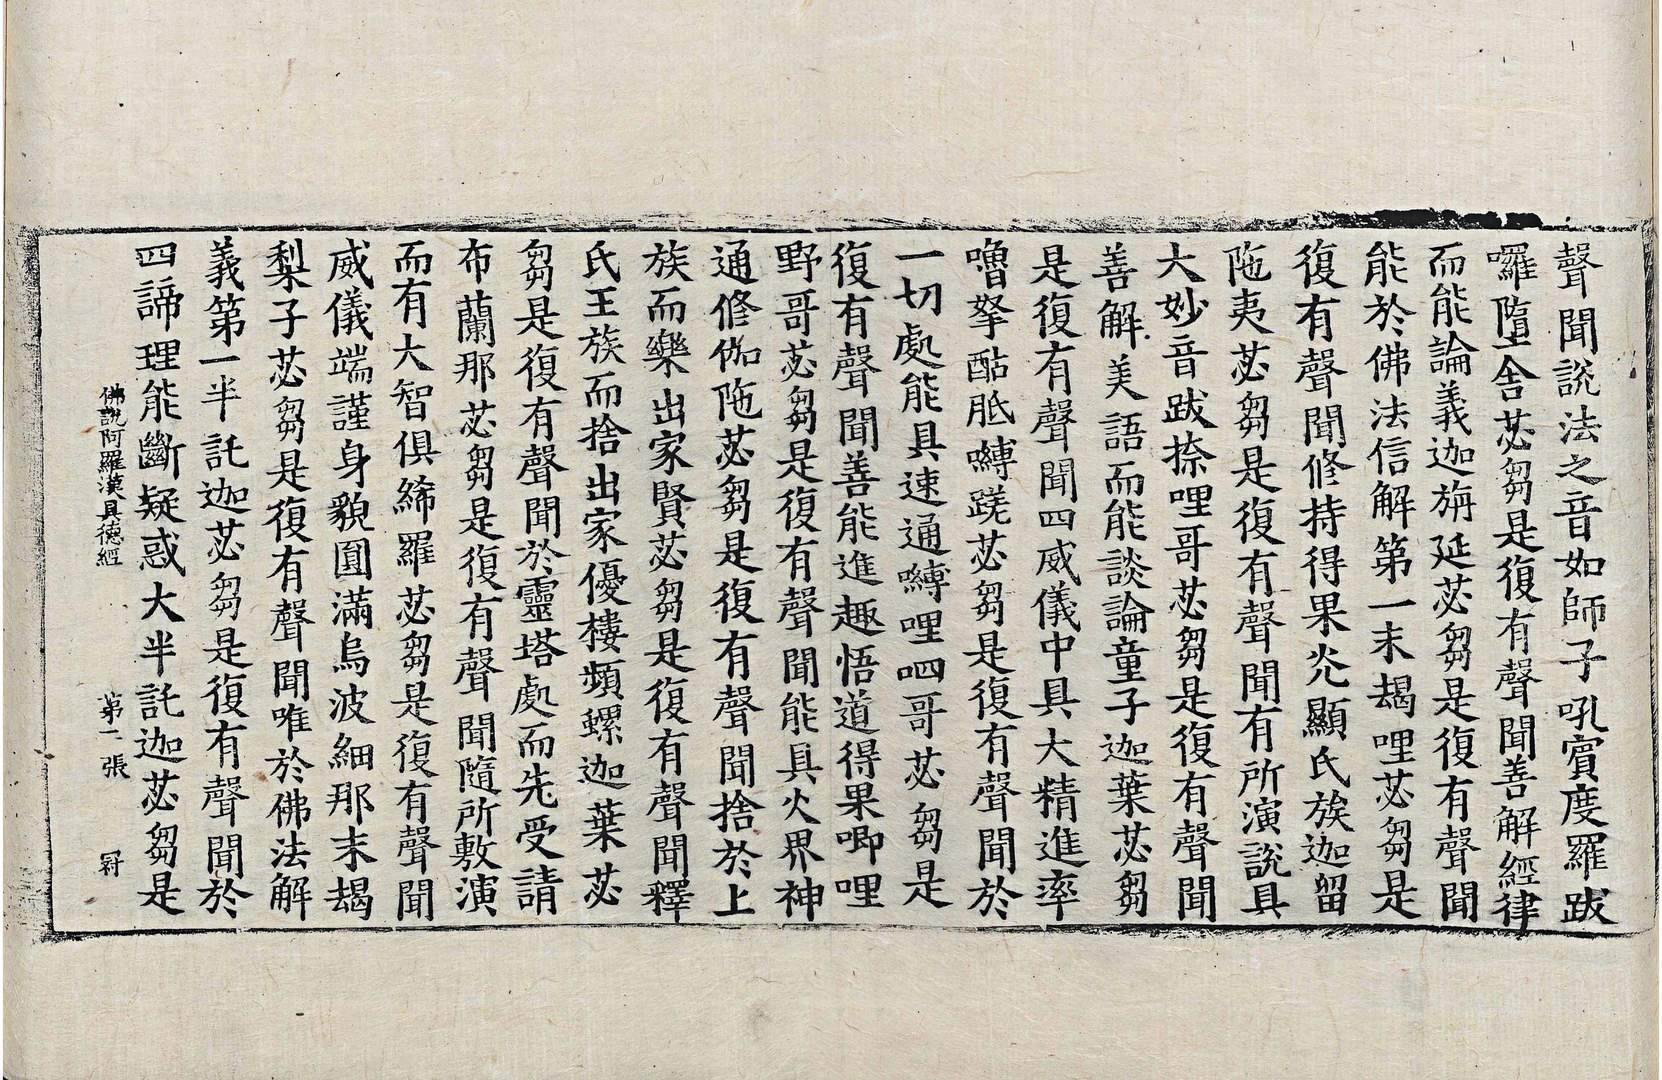 聲聞說法之音如師子吼賓度羅跋
囉墮舍苾芻是復有聲聞善解經律
而能論義迦旃延苾芻是復有聲聞
能於佛法信解第一末朅哩苾芻是
復有聲聞修持得果光顯氏族迦留
陁夷苾芻是復有聲聞有所演說具
大妙音跋捺哩哥苾芻是復有聲聞
善解美語而能談論童子迦葉苾芻
是復有聲聞四威儀中具大精進率
嚕拏酤胝嚩蹉苾芻是復有聲聞於
一切處能具速通嚩哩呬哥苾芻是
復有聲聞善能進趣悟道得果唧哩
野哥苾芻是復有聲聞能具火界神
通修伽陁苾芻是復有聲聞捨於上
族而樂出家賢苾芻是復有聲聞釋
氏王族而捨出家優樓頻螺迦葉苾
芻是復有聲聞於靈塔處而先受請
布蘭那苾芻是復有聲聞隨所敷演
而有大智俱絺羅苾芻是復有聲聞
威儀端謹身貌圓滿烏波細那末朅
梨子苾芻是復有聲聞唯於佛法解
義第一半託迦苾芻是復有聲聞於
四諦理能斷疑惑大半託迦苾芻是
佛說阿羅漢具德經 第二張 冠